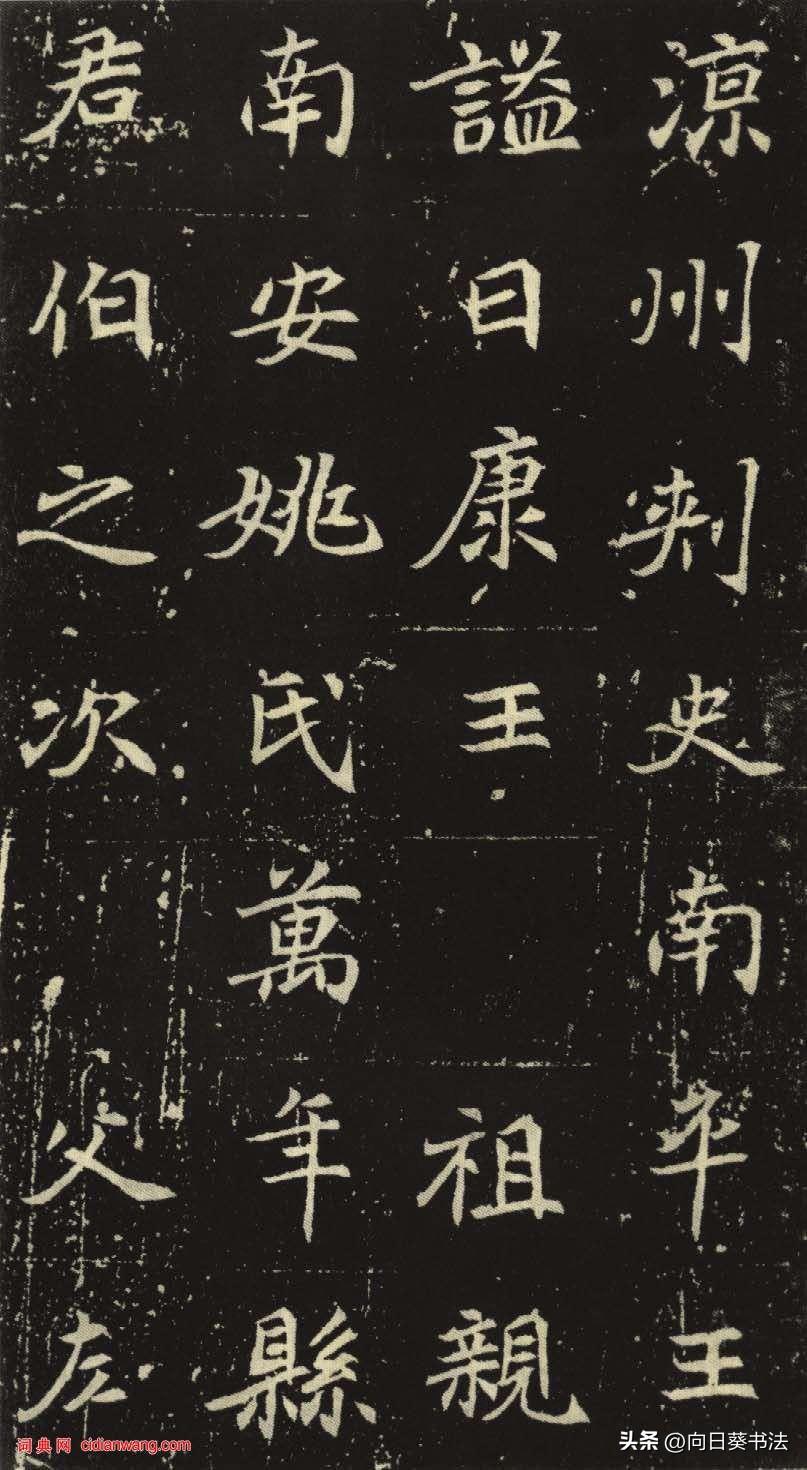 涼州刺史南平王
謚曰康王 祖親
南安姚氏萬年縣
君伯之次 父左
词典网 cidianwang.com
头条 @向日葵书法